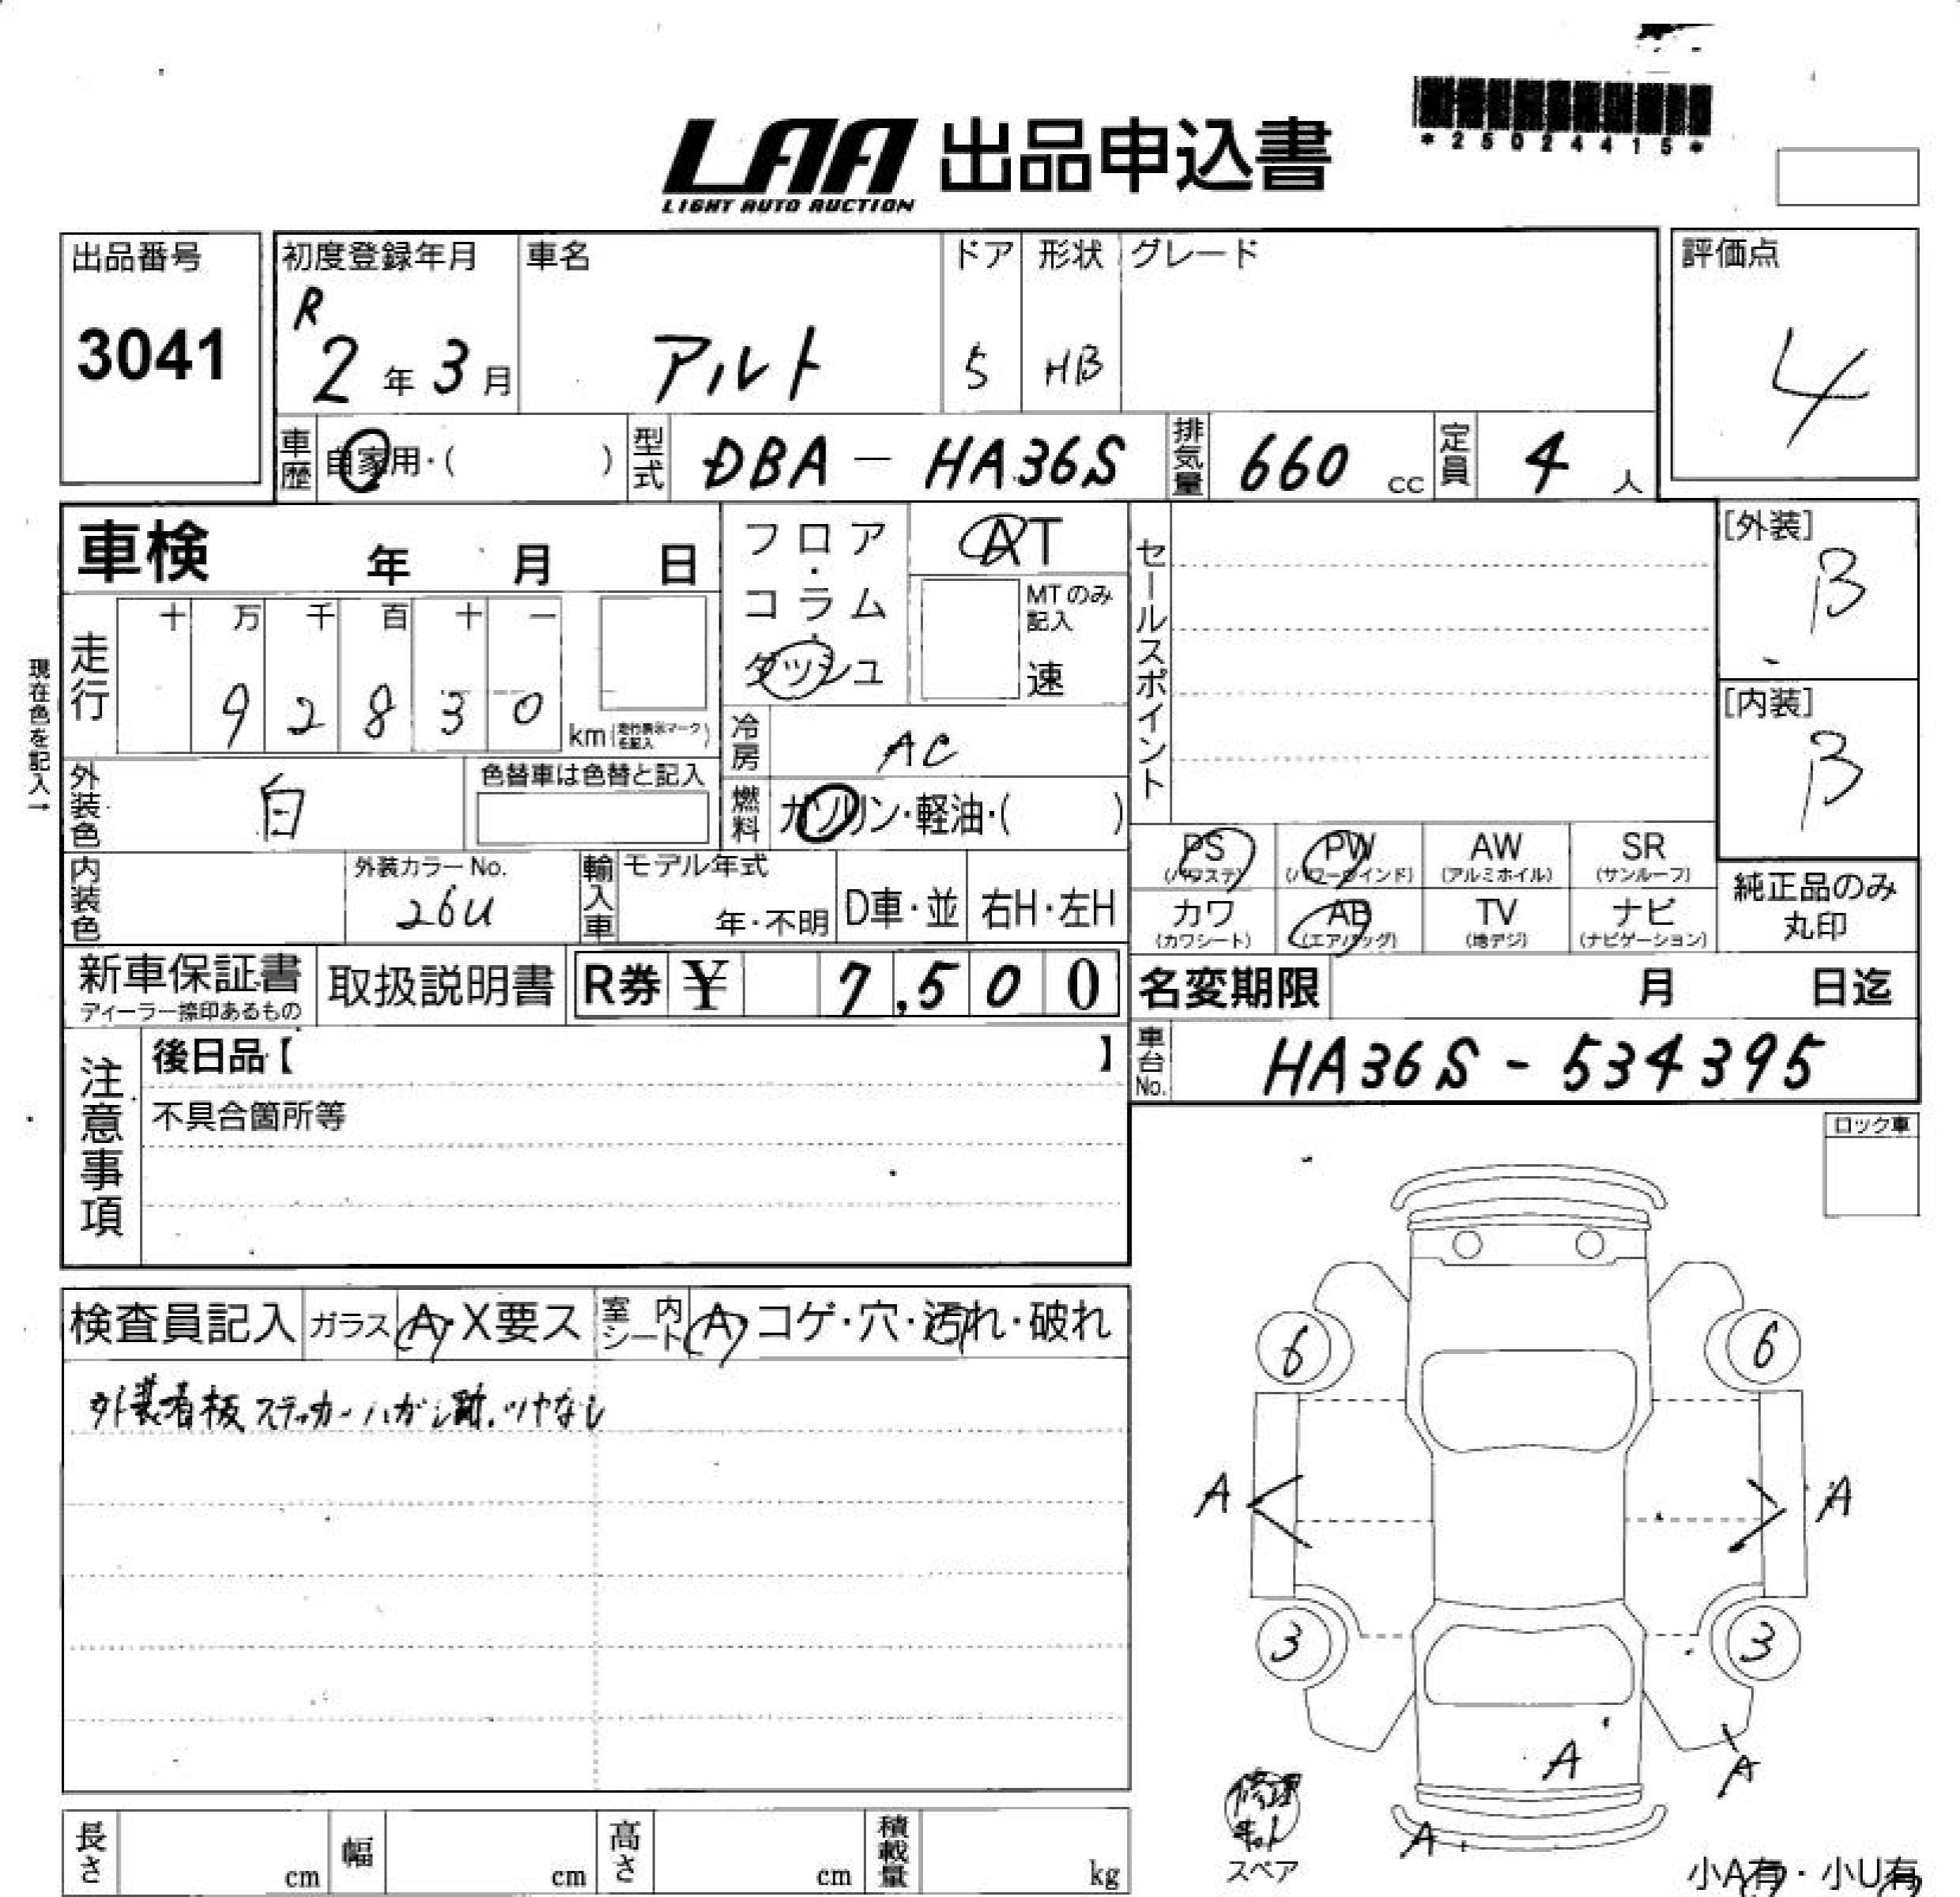 *25024415*
LAA 出品申込書
LIGHT AUTO AUCTION
出品番号 初度登録年月 車名 ドア 形状 グレード 評価点
3041 R2年3月 アルト 5 HB 4
車歴 自家用・( ) 型式 DBA-HA36S 排気量 660 cc 定員 4 人
車検 年 月 日 フロア・コラム・ダッシュ AT
MTのみ記入 速
セールスポイント
[外装] B
[内装] B
現在色を記入→
走行 十 万 千 百 十 一
9 2 8 3 0 km(走行表示マークを記入)
冷房 AC
外装色 白 色替車は色替と記入
燃料 ガソリン・軽油・( )
PS (パワステ) PW (パワーウインド) AW (アルミホイル) SR (サンルーフ)
カワ (カワシート) AB (エアバッグ) TV (地デジ) ナビ (ナビゲーション)
純正品のみ丸印
内装色 外装カラーNo. 26U 輸入車 モデル年式 年・不明 D車・並 右H・左H
新車保証書 取扱説明書 R券 ¥ 7,500 名変期限 月 日迄
ディーラー捺印あるもの
車台No. HA36S-534395
注意事項
後日品【 】
不具合箇所等
ロック車
検査員記入 ガラス A・X要ス 室内シート A・コゲ・穴・汚れ・破れ
外装看板ステッカーハガシ跡.ツヤなし
6 6
A A
3 3
A A
A
スペア
小A有・小U有
長さ cm 幅 cm 高さ cm 積載量 kg